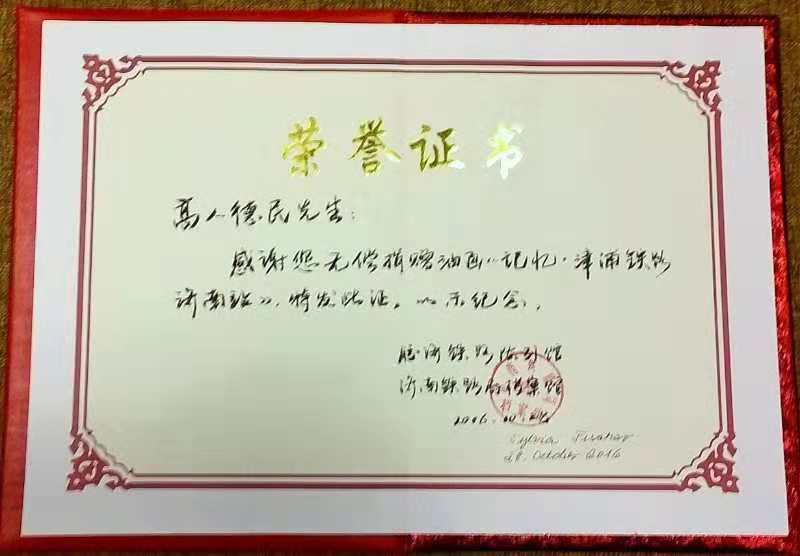 荣誉证书
高人德民先生：
感谢您无偿捐赠油画《记忆·津浦铁路
济南站》，特发此证，以示纪念。
胶济铁路陈列馆
济南铁路局档案馆
2016.10
Sylvia
28. October 2016